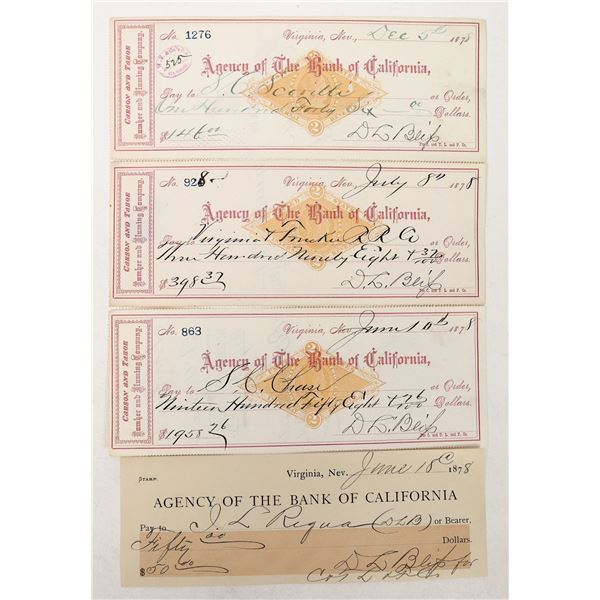 No. 1276 Virginia, Nev., Dec 5th 1878
525
Agency of The Bank of California,
Pay to S. C. or Order,
One Hundred Forty Six 00 Dollars.
$146.00 D L Bliss
For C. and T. L. and F. Co.
Carson and Tahoe
Lumber and Fluming Company.
2 2
No. 928 8 Virginia, Nev., July 8th 1878
Agency of The Bank of California,
Pay to Virginia & Truckee R R Co or Order,
Three Hundred Ninety Eight & 37/100 Dollars.
$398 37 D. L. Bliss
For C. and T. L. and F. Co.
Carson and Tahoe
Lumber and Fluming Company.
2 2
No. 863 Virginia, Nev., June 10th 1878
Agency of The Bank of California,
Pay to S. C. Chase or Order,
Nineteen Hundred Fifty Eight & 26/100 Dollars.
$1958 26 D L Bliss
For C. and T. L. and F. Co.
Carson and Tahoe
Lumber and Fluming Company.
2 2
STAMP. Virginia, Nev. June 18 1878
AGENCY OF THE BANK OF CALIFORNIA
Pay to I. L Requa (DLB) or Bearer.
Fifty 00 Dollars.
$50 00 D L Bliss for